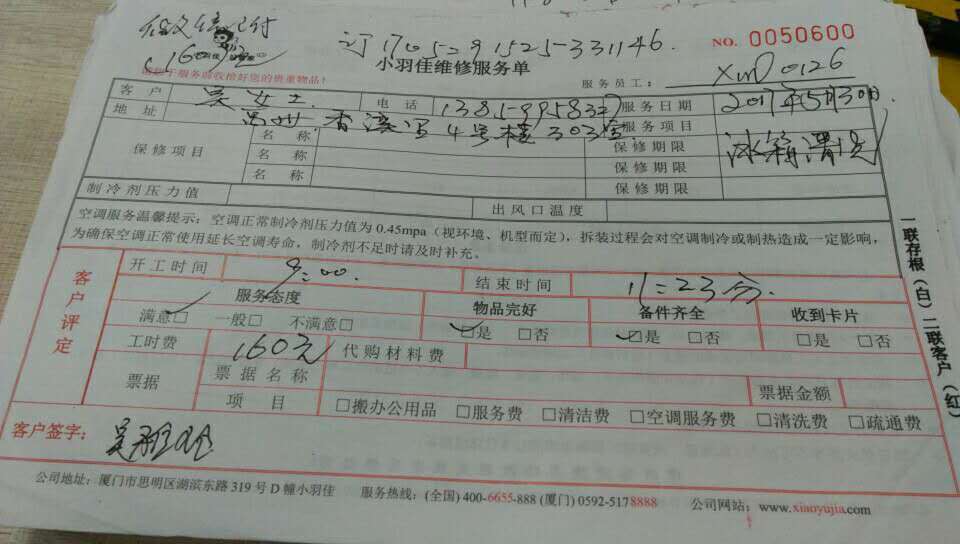 微信支付
160元
订170529152533146.
NO. 0050600
小羽佳维修服务单
服务员工: XMD0126
于服务前收捡好您的贵重物品!
客户 吴女士. 电话 服务日期 2017年5月30日
地址 4号楼303室 服务项目 冰箱清洗
保修项目 名称 保修期限
名称 保修期限
名称 保修期限
制冷剂压力值 出风口温度
空调服务温馨提示: 空调正常制冷剂压力值为0.45mpa(视环境、机型而定),拆装过程会对空调制冷或制热造成一定影响,
为确保空调正常使用延长空调寿命,制冷剂不足时请及时补充。
客户评定
开工时间 9:00 结束时间 11:23分.
服务态度 物品完好 备件齐全 收到卡片
满意□ 一般□ 不满意□ □是 □否 □是 □否 □是 □否
工时费 160元 代购材料费
票据 票据名称 票据金额
项目 □搬办公用品 □服务费 □清洁费 □空调服务费 □清洗费 □疏通费
客户签字: 吴
公司地址: 厦门市思明区湖滨东路319号D幢小羽佳 服务热线: (全国) 400-6655-888 (厦门) 0592-5178888 公司网站: www.xiaoyujia.com
一联存根(白)二联客户(红)